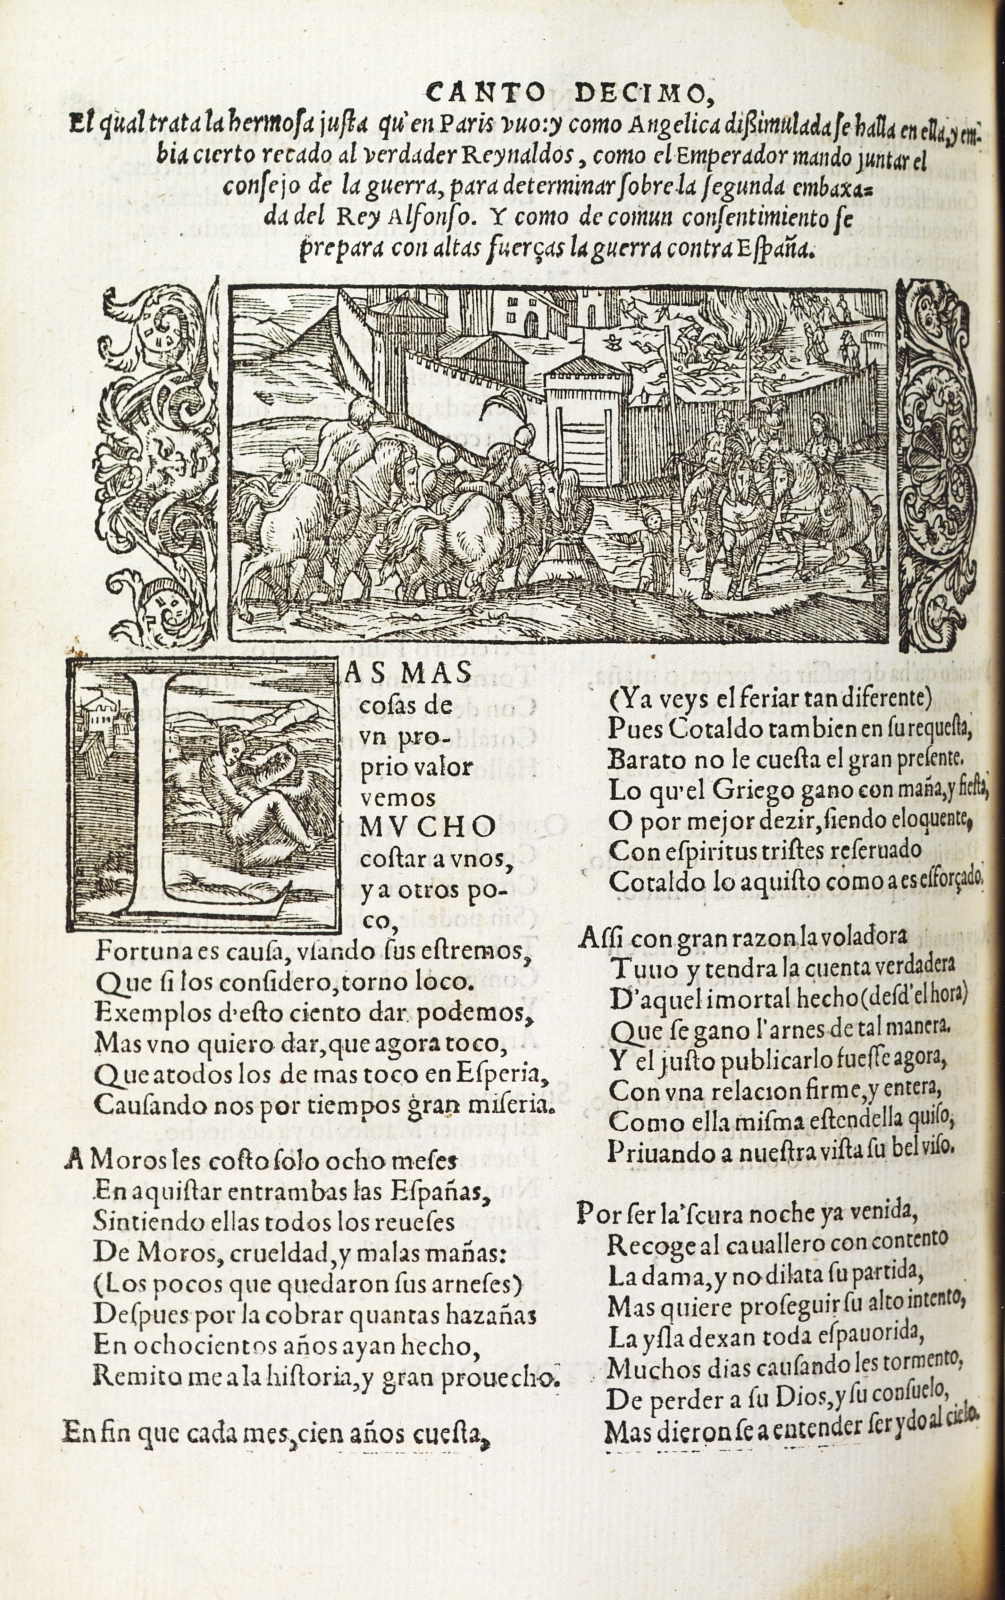 CANTO DECIMO,
El qual trata la hermosa justa qu'en Paris vuo: y como Angelica dißimulada se halla en ella, y em-
bia cierto recado al verdader Reynaldos, como el Emperador mando juntar el
consejo de la guerra, para determinar sobre la segunda embaxa-
da del Rey Alfonso. Y como de comun consentimiento se
prepara con altas fuerças la guerra contra España.
LAS MAS
cosas de
vn pro-
prio valor
vemos
MVCHO
costar a vnos,
y a otros po-
co,
Fortuna es causa, vsando sus estremos,
Que si los considero, torno loco.
Exemplos d'esto ciento dar podemos,
Mas vno quiero dar, que agora toco,
Que atodos los de mas toco en Esperia,
Causando nos por tiempos gran miseria.
A Moros les costo solo ocho meses
En aquistar entrambas las Españas,
Sintiendo ellas todos los reueses
De Moros, crueldad, y malas mañas:
(Los pocos que quedaron sus arneses)
Despues por la cobrar quantas hazañas
En ochocientos años ayan hecho,
Remito me a la historia, y gran prouecho.
En fin que cada mes, cien años cuesta,
(Ya veys el feriar tan diferente)
Pues Cotaldo tambien en su requesta,
Barato no le cuesta el gran presente.
Lo qu'el Griego gano con maña, y fiesta,
O por mejor dezir, siendo eloquente,
Con espiritus tristes reseruado
Cotaldo lo aquisto como a es esforçado,
Assi con gran razon la voladora
Tuuo y tendra la cuenta verdadera
D'aquel imortal hecho (desd'el hora)
Que se gano l'arnes de tal manera.
Y el justo publicarlo fuesse agora,
Con vna relacion firme, y entera,
Como ella misma estendella quiso,
Priuando a nuestra vista su bel viso.
Por ser la'scura noche ya venida,
Recoge al cauallero con contento
La dama, y no dilata su partida,
Mas quiere proseguir su alto intento,
La ysla dexan toda espauorida,
Muchos dias causando les tormento,
De perder a su Dios, y su consuelo,
Mas dieron se a entender ser ydo al cielo.